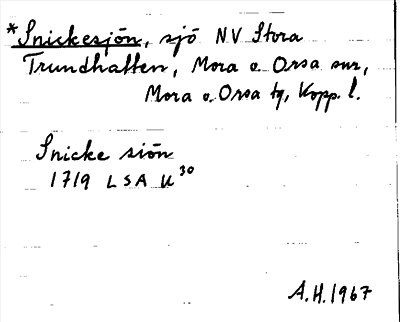 *Snickesjön, sjö NV Stora
Trundhatten, Mora o. Orsa snr,
Mora o. Orsa tg, Kopp. l.
Snicke siön
1719 LSA U³⁰
A.H. 1967